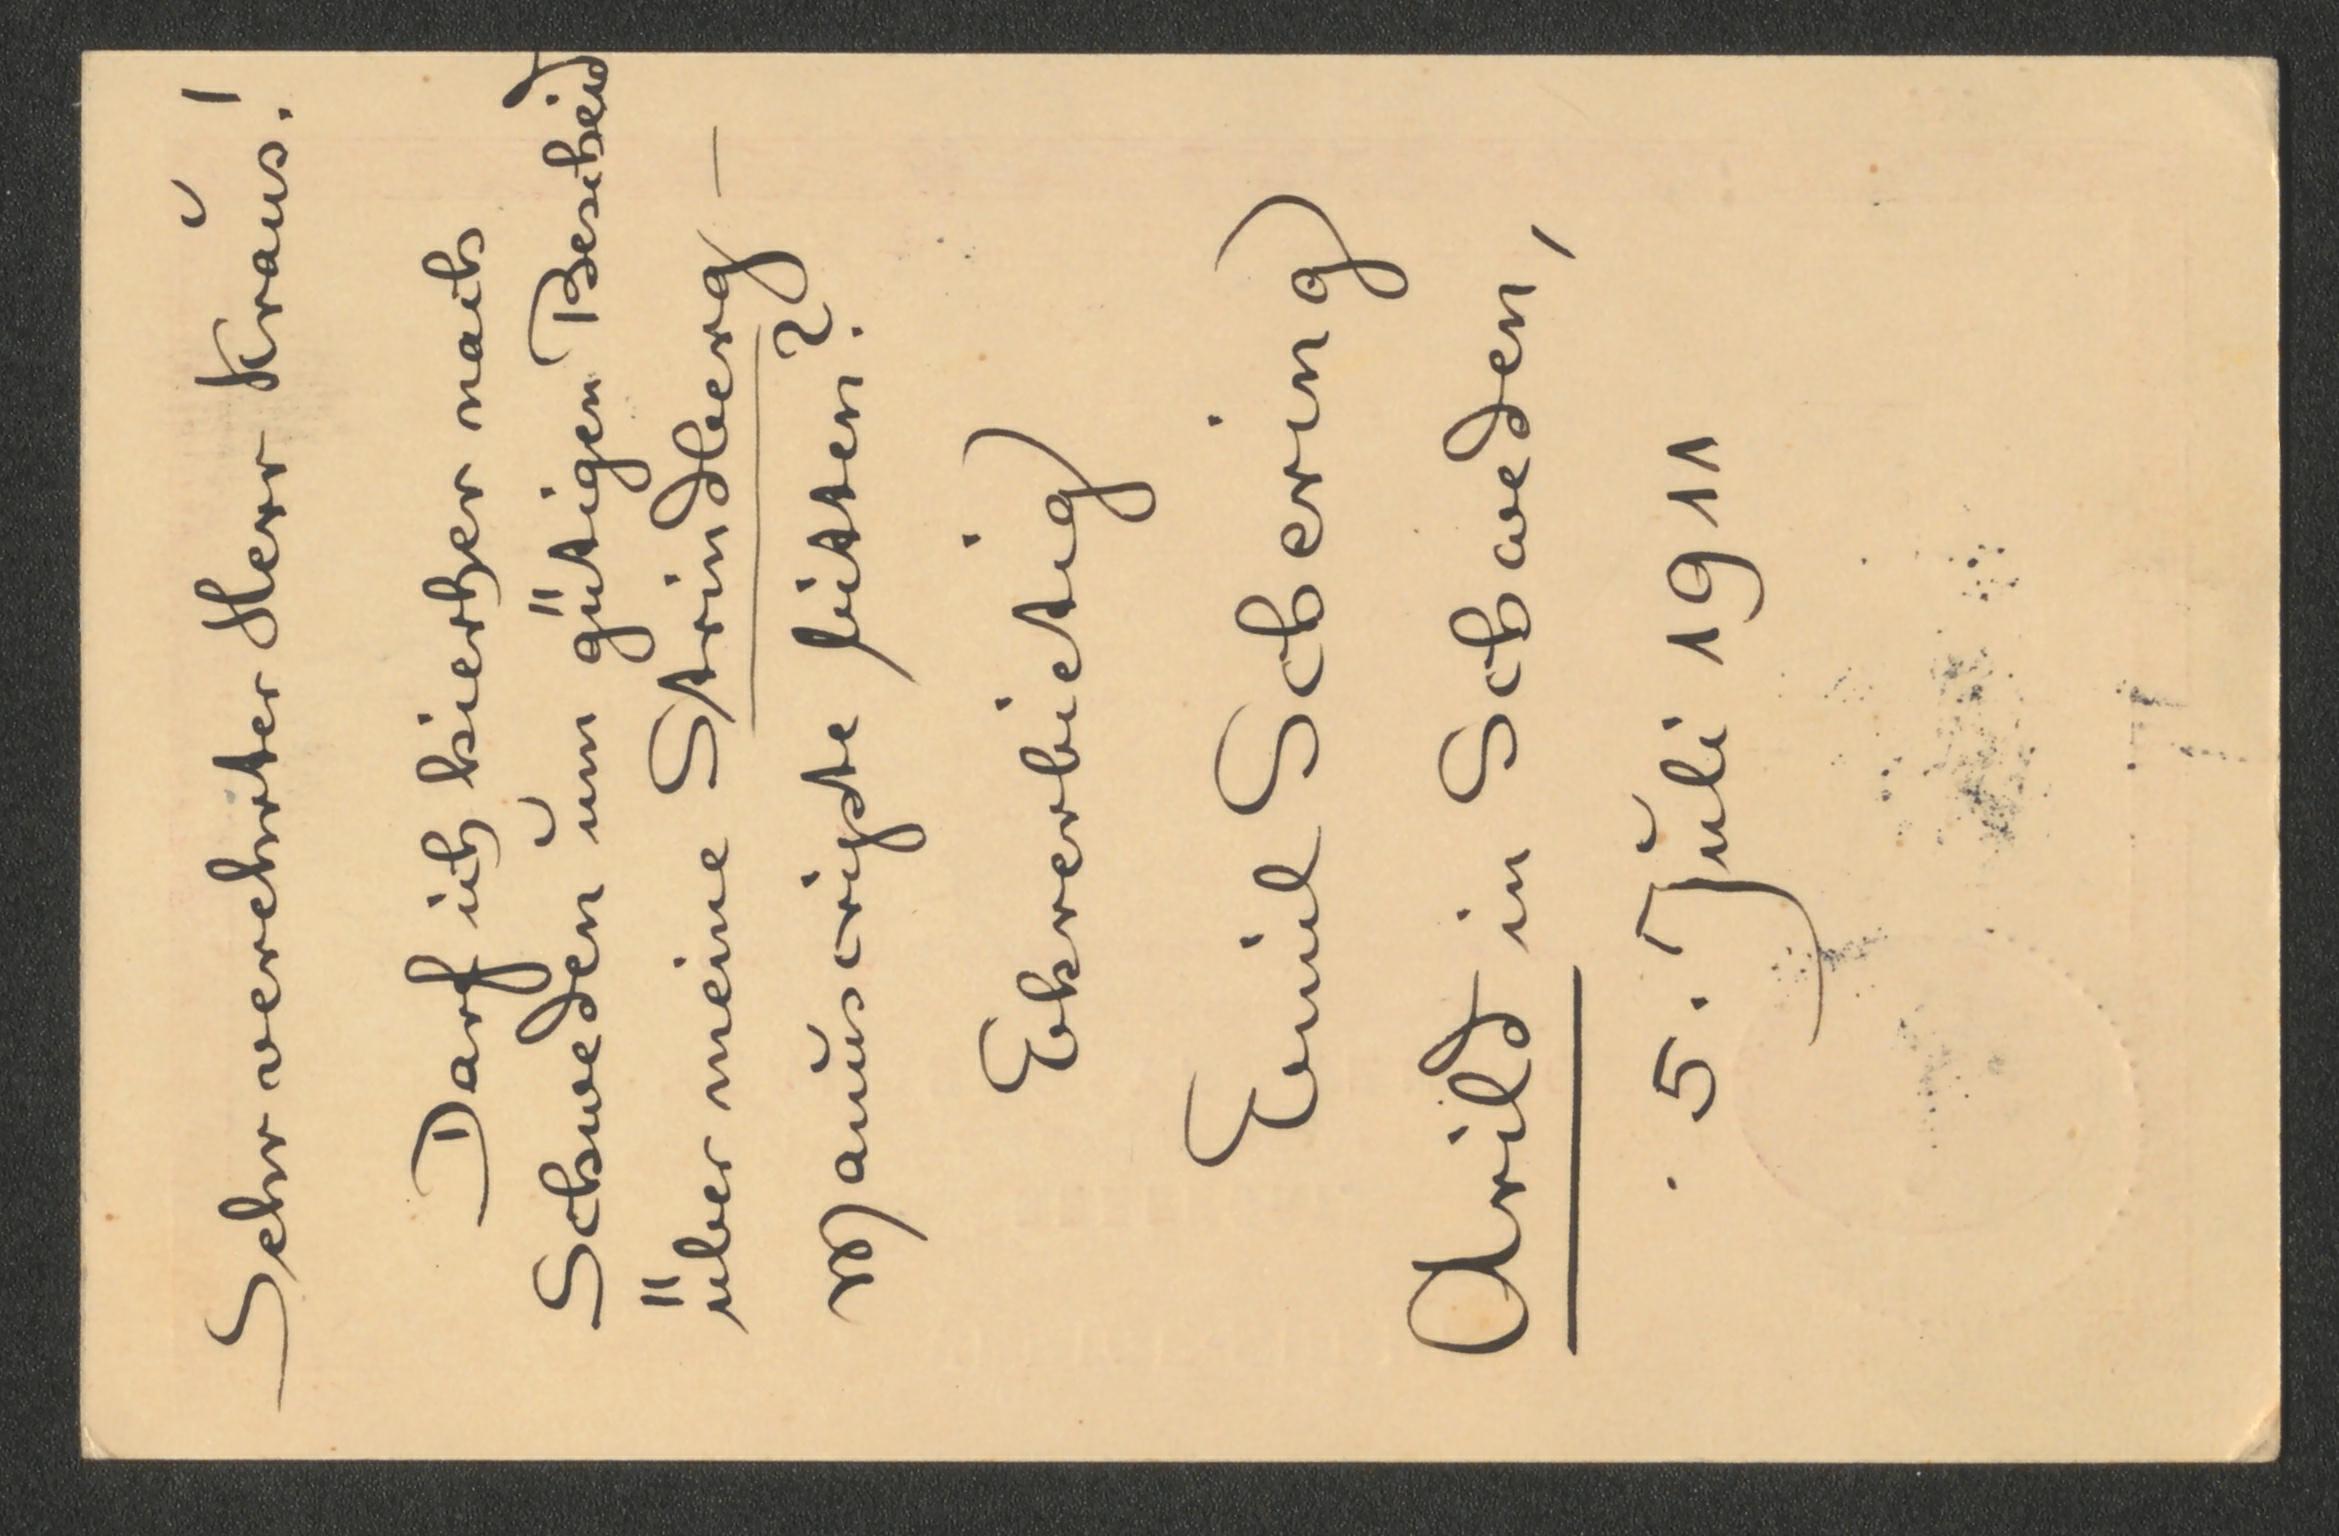 Sehr verehrter Herr Kraus!
Darf ich hierher nach
Schweden um gütigen Bescheid
über meine Strindberg–
Manuscripte bitten?
Ehrerbietig
Emil Schering
Arild in Schweden,
5. Juli 1911